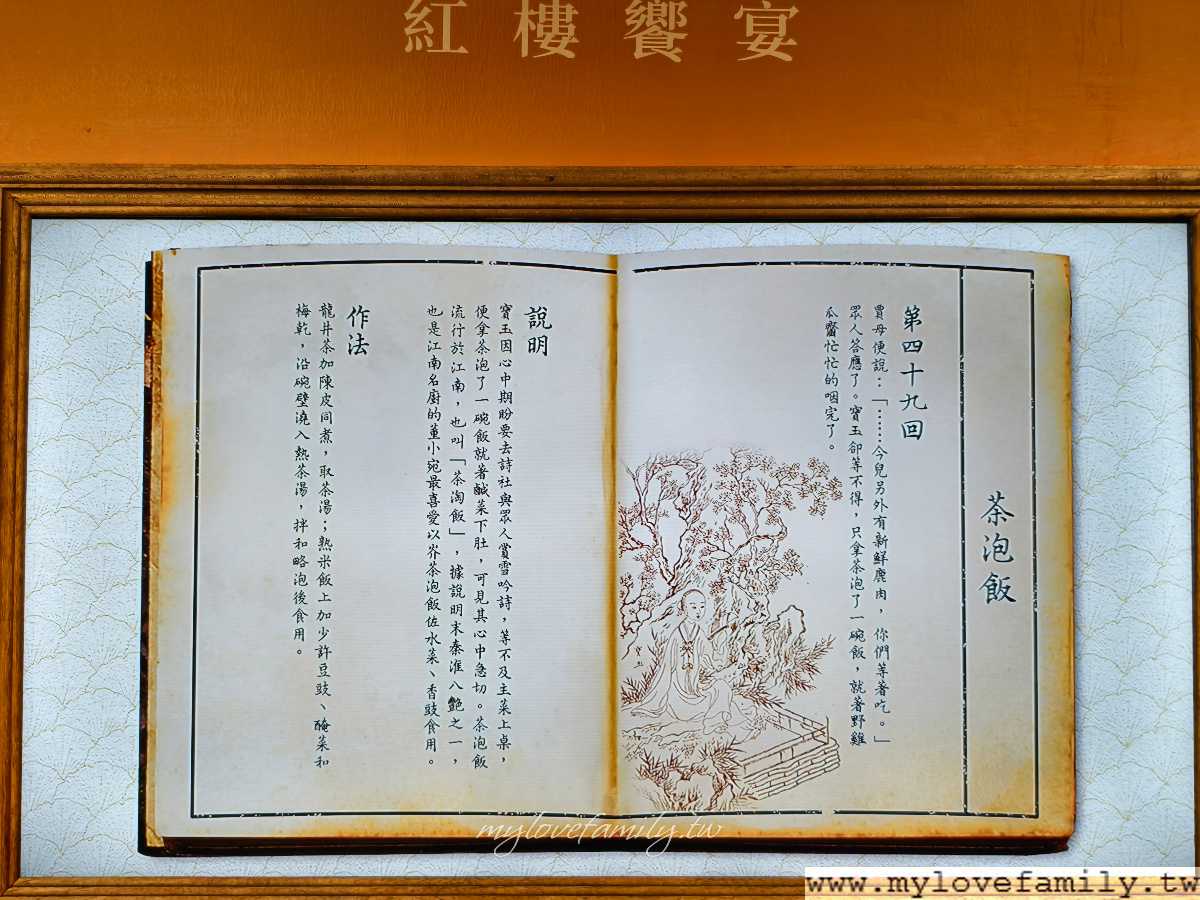 紅樓饗宴
茶泡飯
第四十九回
賈母便說：「……今兒另外有新鮮鹿肉，你們等著吃。」
眾人答應了。寶玉卻等不得，只拿茶泡了一碗飯，就著野雞
瓜齏忙忙的咽完了。
說明
寶玉因心中期盼要去詩社與眾人賞雪吟詩，等不及主菜上桌，
便拿茶泡了一碗飯就著鹹菜下肚，可見其心中急切。茶泡飯
流行於江南，也叫「茶淘飯」，據說明末秦淮八艷之一，
也是江南名廚的董小宛最喜愛以岕茶泡飯佐水菜、香豉食用。
作法
龍井茶加陳皮同煮，取茶湯；熟米飯上加少許豆豉、醃菜和
梅乾，沿碗壁澆入熱茶湯，拌和略泡後食用。
mylovefamily.tw
www.mylovefamily.tw